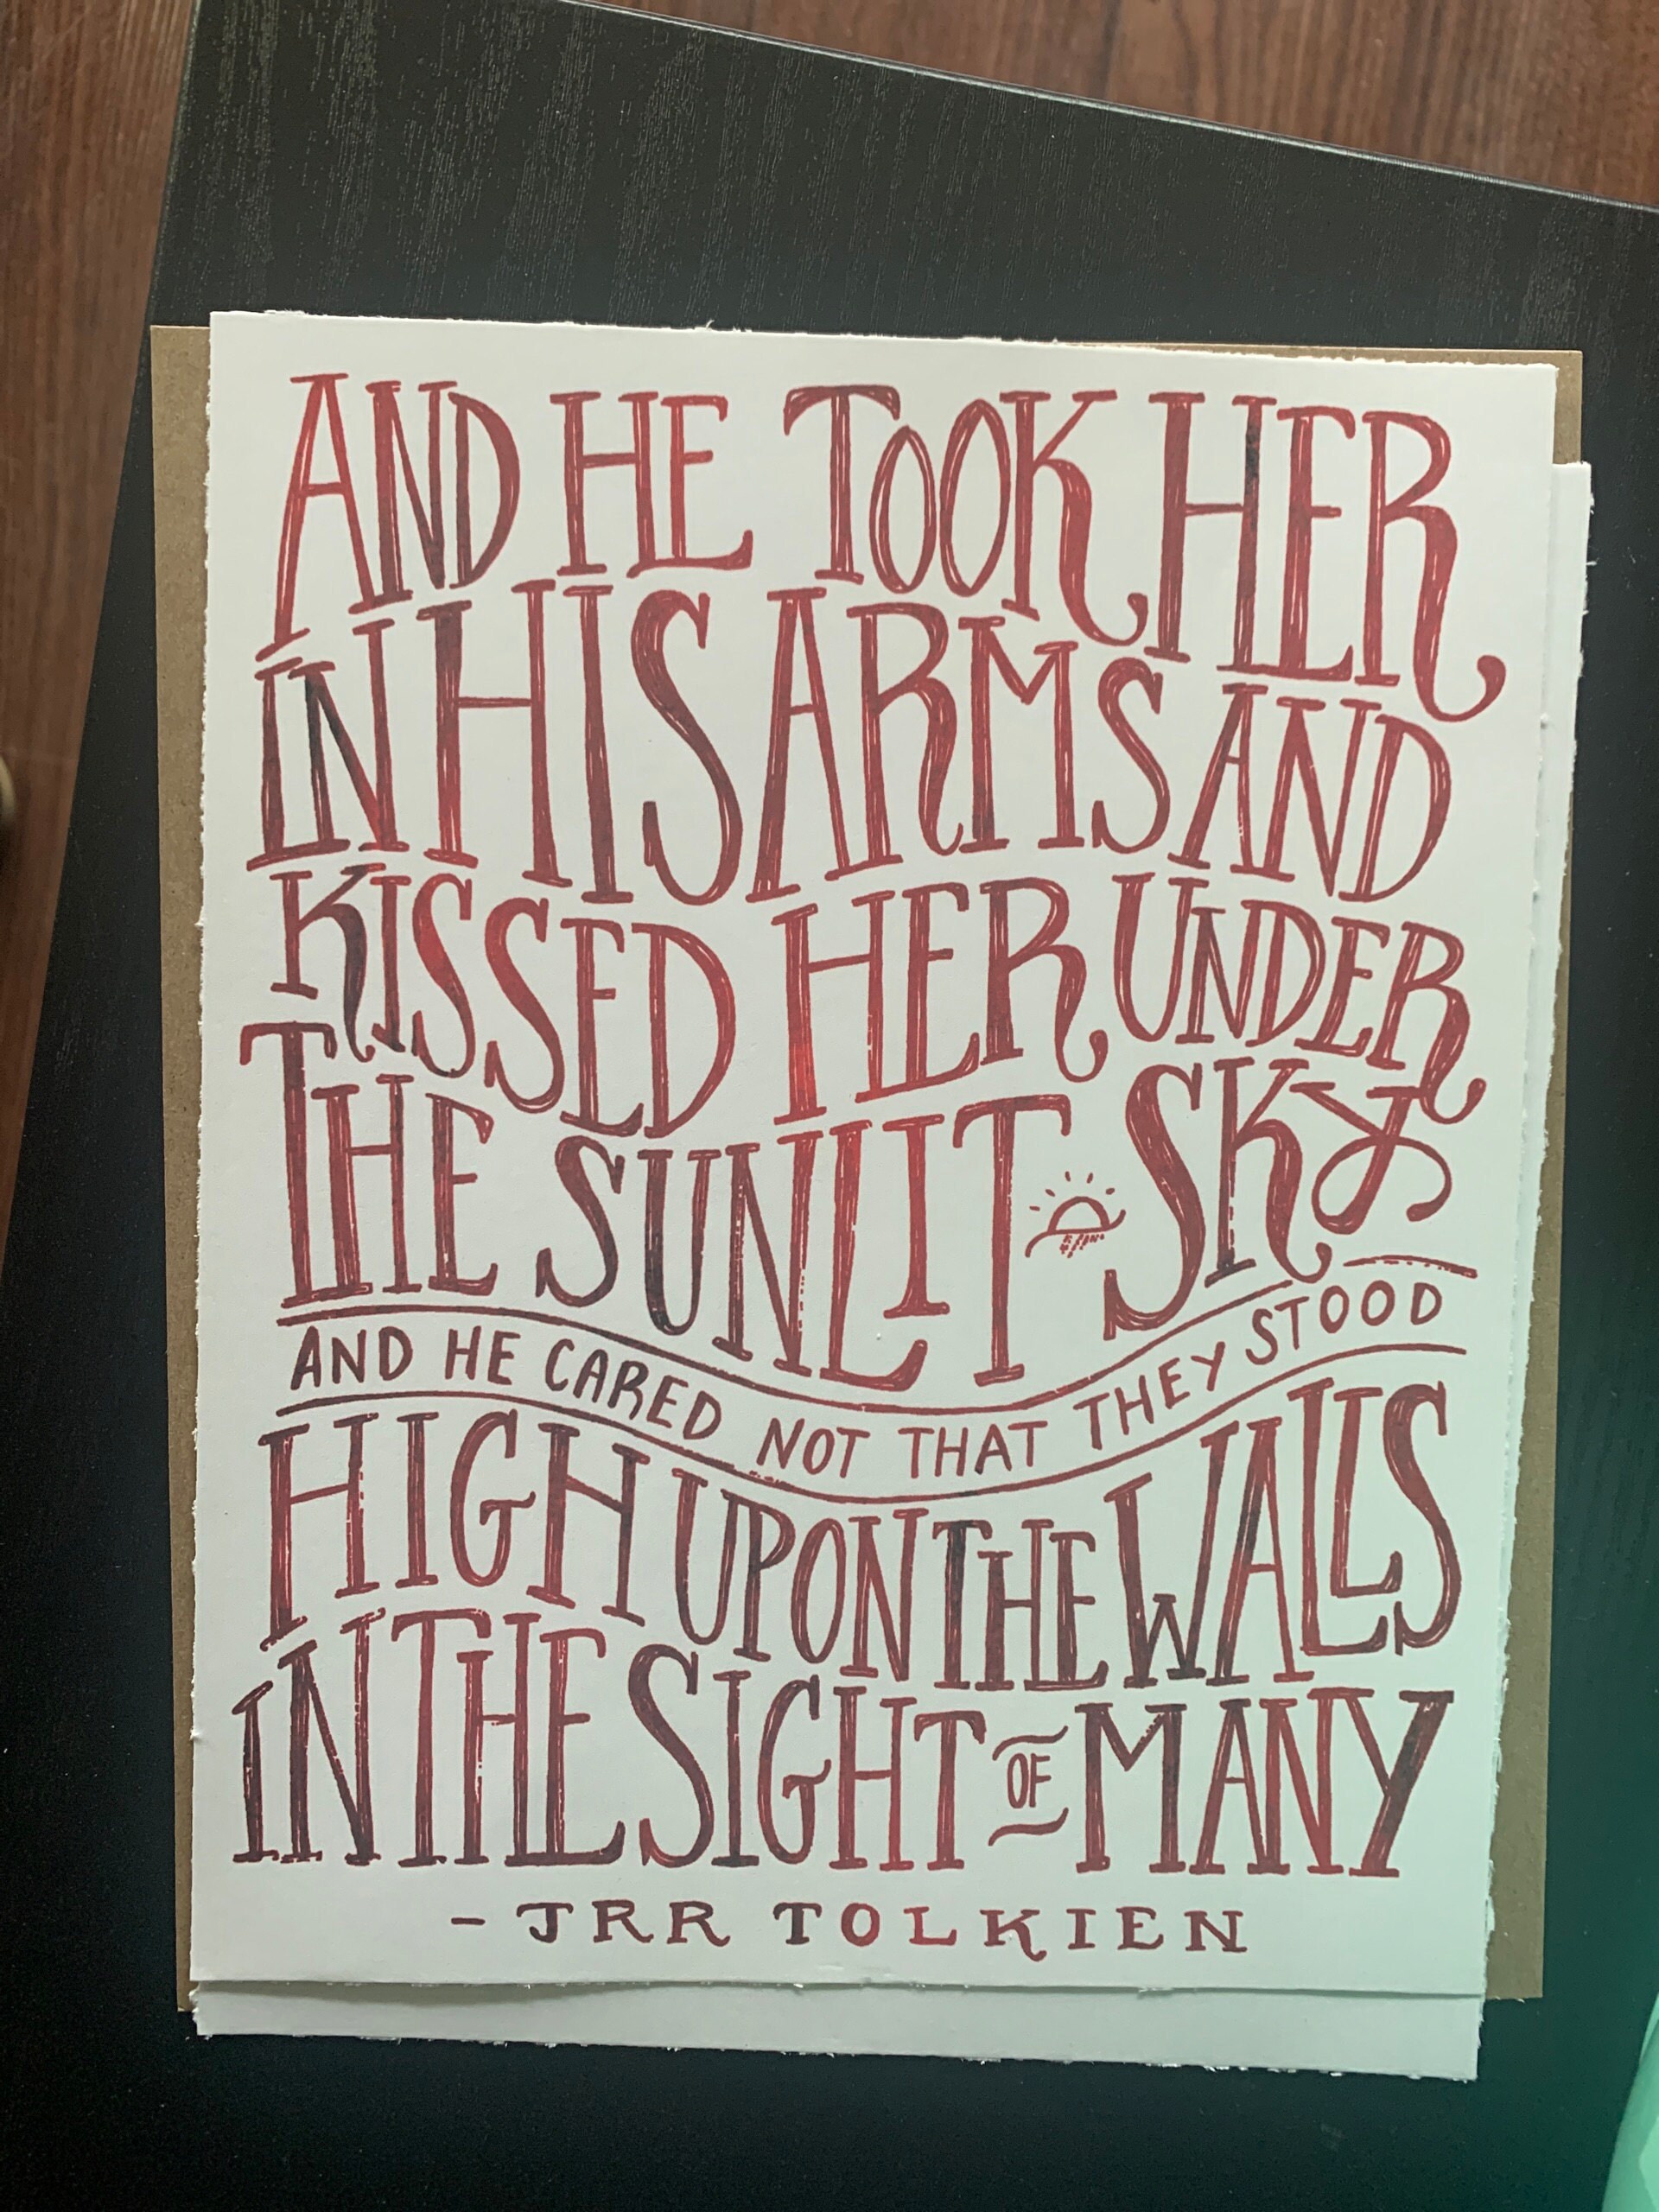 AND HE TOOK HER
IN HIS ARMS AND
KISSED HER UNDER
THE SUNLIT SKY
AND HE CARED NOT THAT THEY STOOD
HIGH UPON THE WALLS
IN THE SIGHT OF MANY
- JRR TOLKIEN